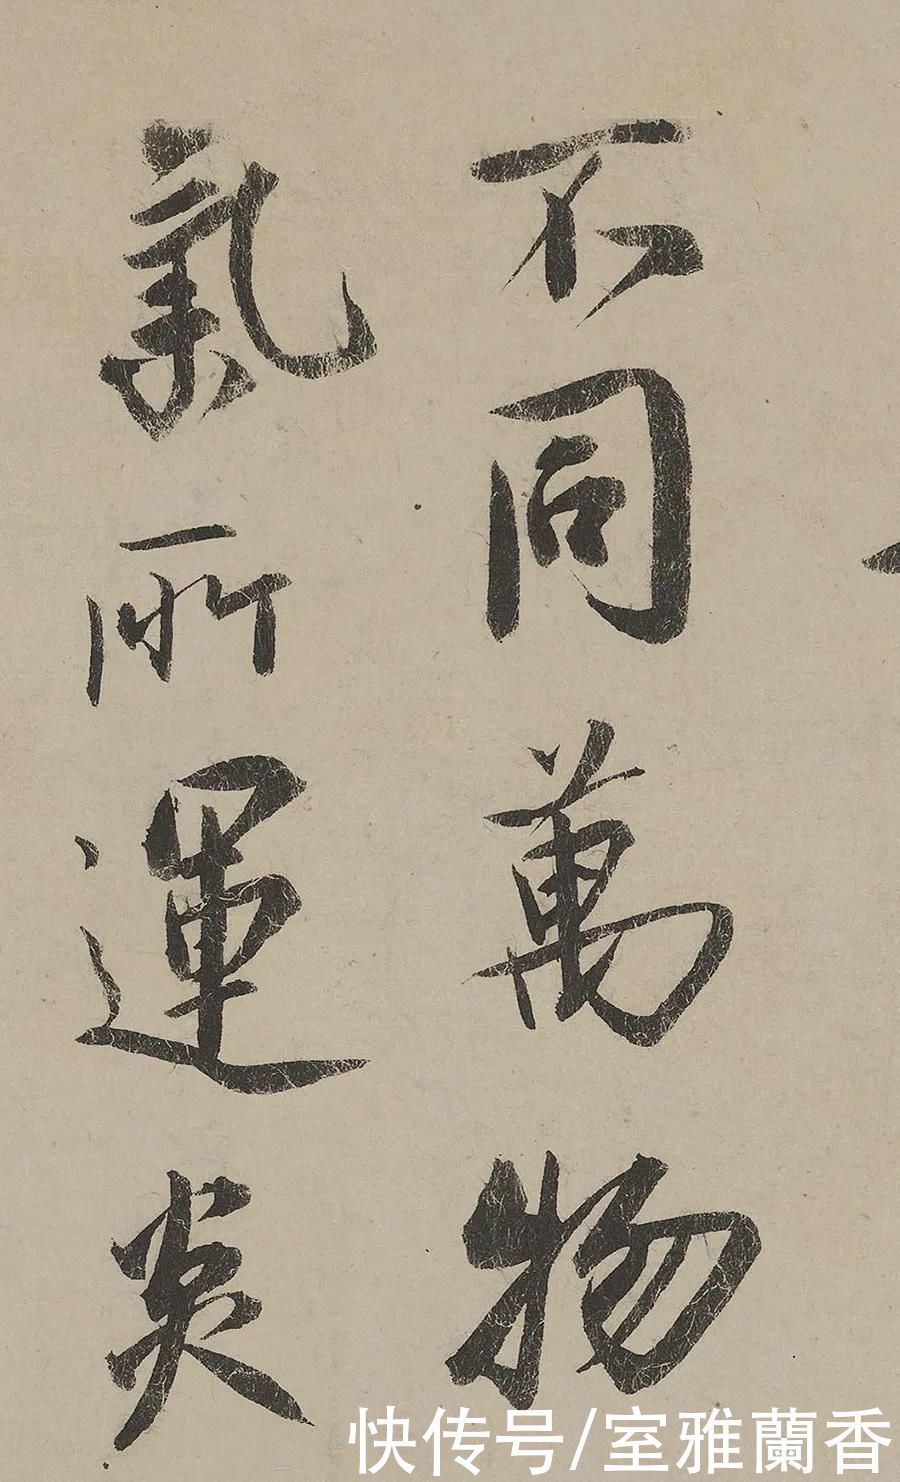 不同萬物
氣所運炎
快传号/室雅蘭香